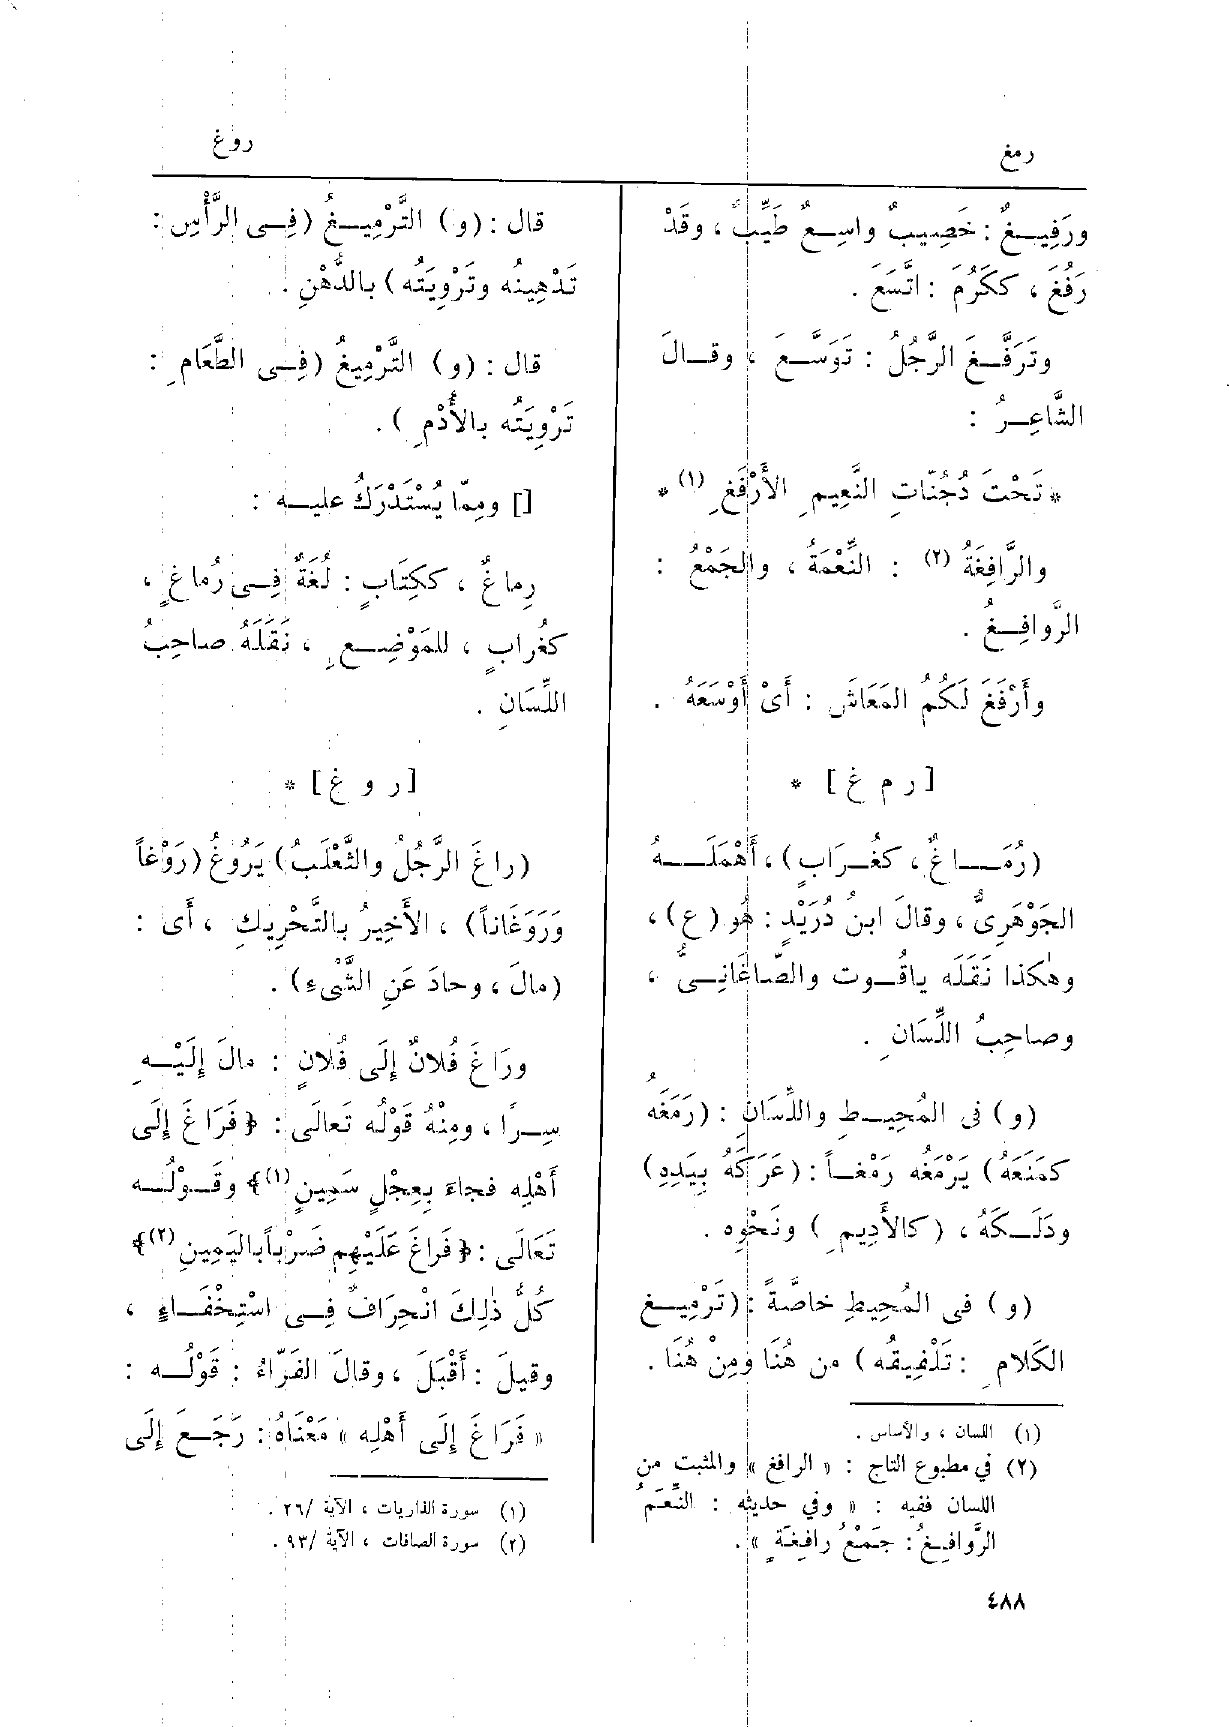 رمغ
روغ
ورَفِيــغٌ : خَصِيبٌ واسِعٌ طَيِّبٌ ، وقَدْ
رَفُغَ ، ككَرُمَ : اتَّسَعَ .
وتَرَفَّــغَ الرَّجُلُ : تَوَسَّــعَ ، وقــالَ
الشَّاعِــرُ :
* تَحْتَ دُجُنّاتِ النَّعِيمِ الأَرْفَغِ (١) *
والرَّافِغَةُ (٢) : النِّعْمَةُ ، والجَمْعُ :
الرَّوافِــغُ .
وأَرْفَغَ لَكُمُ المَعَاشَ : أَىْ أَوْسَعَهُ .
[ ر م غ ] *
(رُمَــاغٌ ، كغُــرَابٍ) ، أَهْمَلَــهُ
الجَوْهَرِىُّ ، وقالَ ابنُ دُرَيْدٍ : هُو (ع) ،
وهٰكذا نَقَلَه ياقُــوت والصّاغَانِــىُّ ،
وصاحِبُ اللِّسَانِ .
(و) فى المُحِيــطِ واللِّسَانِ : (رَمَغَه
كمَنَعَهُ) يَرْمَغُه رَمْغــاً : (عَرَكَهُ بِيَدِهِ)
ودَلَــكَهُ ، (كالأَدِيمِ) ونَحْوِه .
(و) فى المُحِيطِ خاصَّةً : (تَرْمِيــغ
الكَلامِ : تَلْفِيقُه) من هُنَا ومِنْ هُنَا .
(١) اللسان ، والأساس .
(٢) في مطبوع التاج : « الرافغ » والمثبت من
اللسان ففيه : « وفي حديثه : النِّعَمُ
الرَّوافِــغُ : جَمْعُ رافِغَةٍ » .
قال : (و) التَّرْمِيــغُ (فِــى الرَّأْسِ :
تَدْهِينُه وتَرْوِيَتُه) بالدُّهْنِ .
قال : (و) التَّرْمِيغُ (فِــى الطَّعَامِ :
تَرْوِيَتُه بالأُدْمِ) .
[] ومِمّا يُسْتَدْرَكُ عليــه :
رِماغٌ ، ككِتَابٍ : لُغَةٌ فِــى رُماغٍ ،
كغُرابٍ ، للمَوْضِــعِ ، نَقَلَهُ صاحِبُ
اللِّسَانِ .
[ ر و غ ] *
(راغَ الرَّجُلُ والثَّعْلَبُ) يَرُوغُ (رَوْغاً
وَرَوَغَاناً) ، الأَخِيرُ بالتَّحْرِيكِ ، أَى :
(مالَ ، وحادَ عَنِ الشَّىءِ) .
ورَاغَ فُلانٌ إِلَى فُلانٍ : مالَ إِلَيْــهِ
سِــرًّا ، ومِنْهُ قَوْلُه تَعالَى : ﴿ فَرَاغَ إِلَى
أَهْلِه فجاءَ بِعِجْلٍ سَمِينٍ (١)﴾ وقَــوْلُــه
تَعَالَى : ﴿ فَراغَ عَلَيْهِم ضَرْباً بالْيَمِينِ (٢)﴾
كُلُّ ذٰلِكَ انْحِرَافٌ فِــى اسْتِخْفَــاءٍ ،
وقيلَ : أَقْبَلَ ، وقالَ الفَرّاءُ : قَوْلُــه :
« فَرَاغَ إِلَى أَهْلِه » مَعْنَاهُ : رَجَــعَ إِلَى
(١) سورة الذاريات ، الآية /٢٦ .
(٢) سورة الصافات ، الآية /٩٣ .
٤٨٨